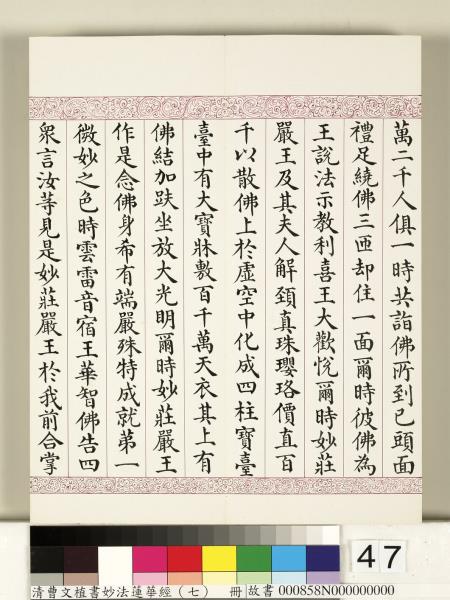 萬二千人俱一時共詣佛所到已頭面
禮足繞佛三匝却住一面爾時彼佛為
王說法示教利喜王大歡悅爾時妙莊
嚴王及其夫人解頸真珠瓔珞價直百
千以散佛上於虛空中化成四柱寶臺
臺中有大寶牀敷百千萬天衣其上有
佛結加趺坐放大光明爾時妙莊嚴王
作是念佛身希有端嚴殊特成就第一
微妙之色時雲雷音宿王華智佛告四
衆言汝等見是妙莊嚴王於我前合掌
47
清曹文植書妙法蓮華經(七) 冊 故書 000858N000000000